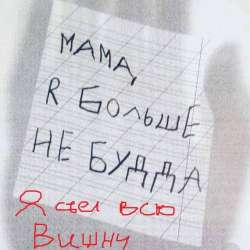 МАМА,
Я БОЛЬШЕ
НЕ БУДДА
Я съел всю
Вишну